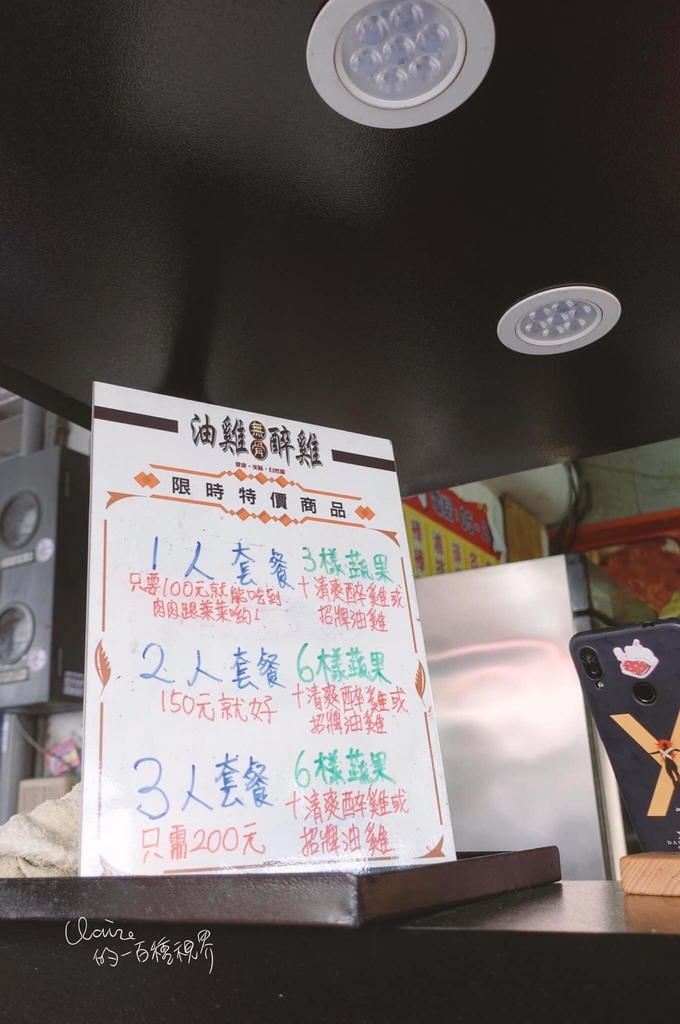 油雞無骨醉雞
限時特價商品
1人套餐 3樣蔬果
只要100元就能吃到
肉肉跟菜菜喲!
+清爽醉雞或
招牌油雞
2人套餐 6樣蔬果
150元就好
+清爽醉雞或
招牌油雞
3人套餐 6樣蔬果
只需200元
+清爽醉雞或
招牌油雞
Claire
的一百種視界